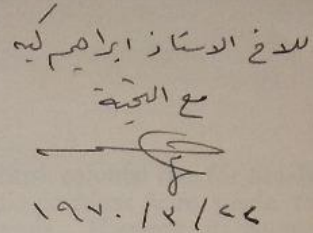 للاخ الاستاذ ابراهيم كبه
مع التحية
١٩٧٠/٣/٢٢